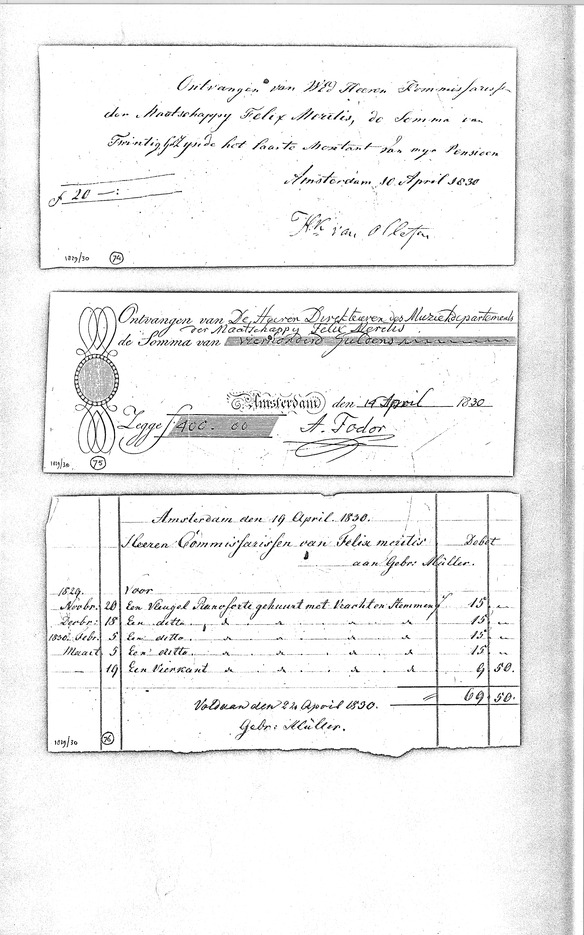 Ontvangen van WEd Heeren Kommissarisse
der Maatschappy Felix Meritis, de Somma van
Twintig f Zynde het laaste Montant van myn Pensioen
Amsterdam, 10 April 1830
f 20 —:
H.k. van Olleffen
1829/30 74
Ontvangen van De Heeren Direkteeren des Muziekdepartements
der Maatschappy Felix Meritis
de Somma van vierhonderd Guldens
Amsterdam den 14 April 1830
Zegge f 400. 00 A. Fodor
1829/30 75
Amsterdam den 19 April. 1830.
Heeren Commissarissen van Felix meritis Debet
aan Gebr: Müller.
1829. Voor
Novbr. 20 Een Vleugel Pianoforte gehuurt met Vracht en Stemmen f 15 „
Decbr: 18 Een detto „ „ „ „ „ 15 „
1830 Febr. 5 Een ditto „ „ „ „ 15 „
Maart 5 Een ditto „ „ „ „ 15 „
— 19 Een Vierkant „ „ „ „ 9 50.
69 50.
Voldaan den 22 April 1830.
Gebr: Müller.
1829/30 76